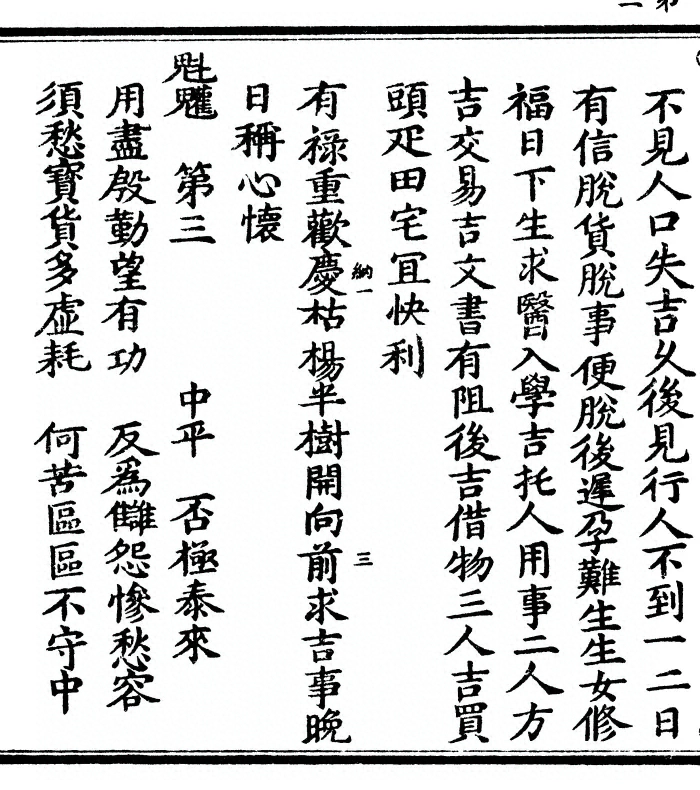 不見人口失吉乆後見行人不到一二日
有信脫貨脫事便脫後遲孕難生生女修
福日下生求醫入學吉托人用事二人方
吉交易吉文書有阻後吉借物三人吉買
頭疋田宅冝快利
有祿重歡慶枯楊半樹開向前求吉事晚
納一
三
日稱心懷
魁魓　第三　中平　否極泰來
用盡殷勤望有功　反爲讎怨慘愁容
須愁寶貨多虛耗　何苦區區不守中